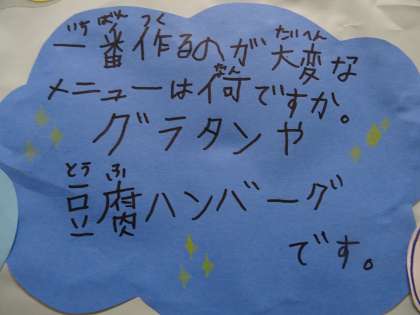 一番作るのが大変な
メニューは何ですか。
グラタンや
豆腐ハンバーグ
です。